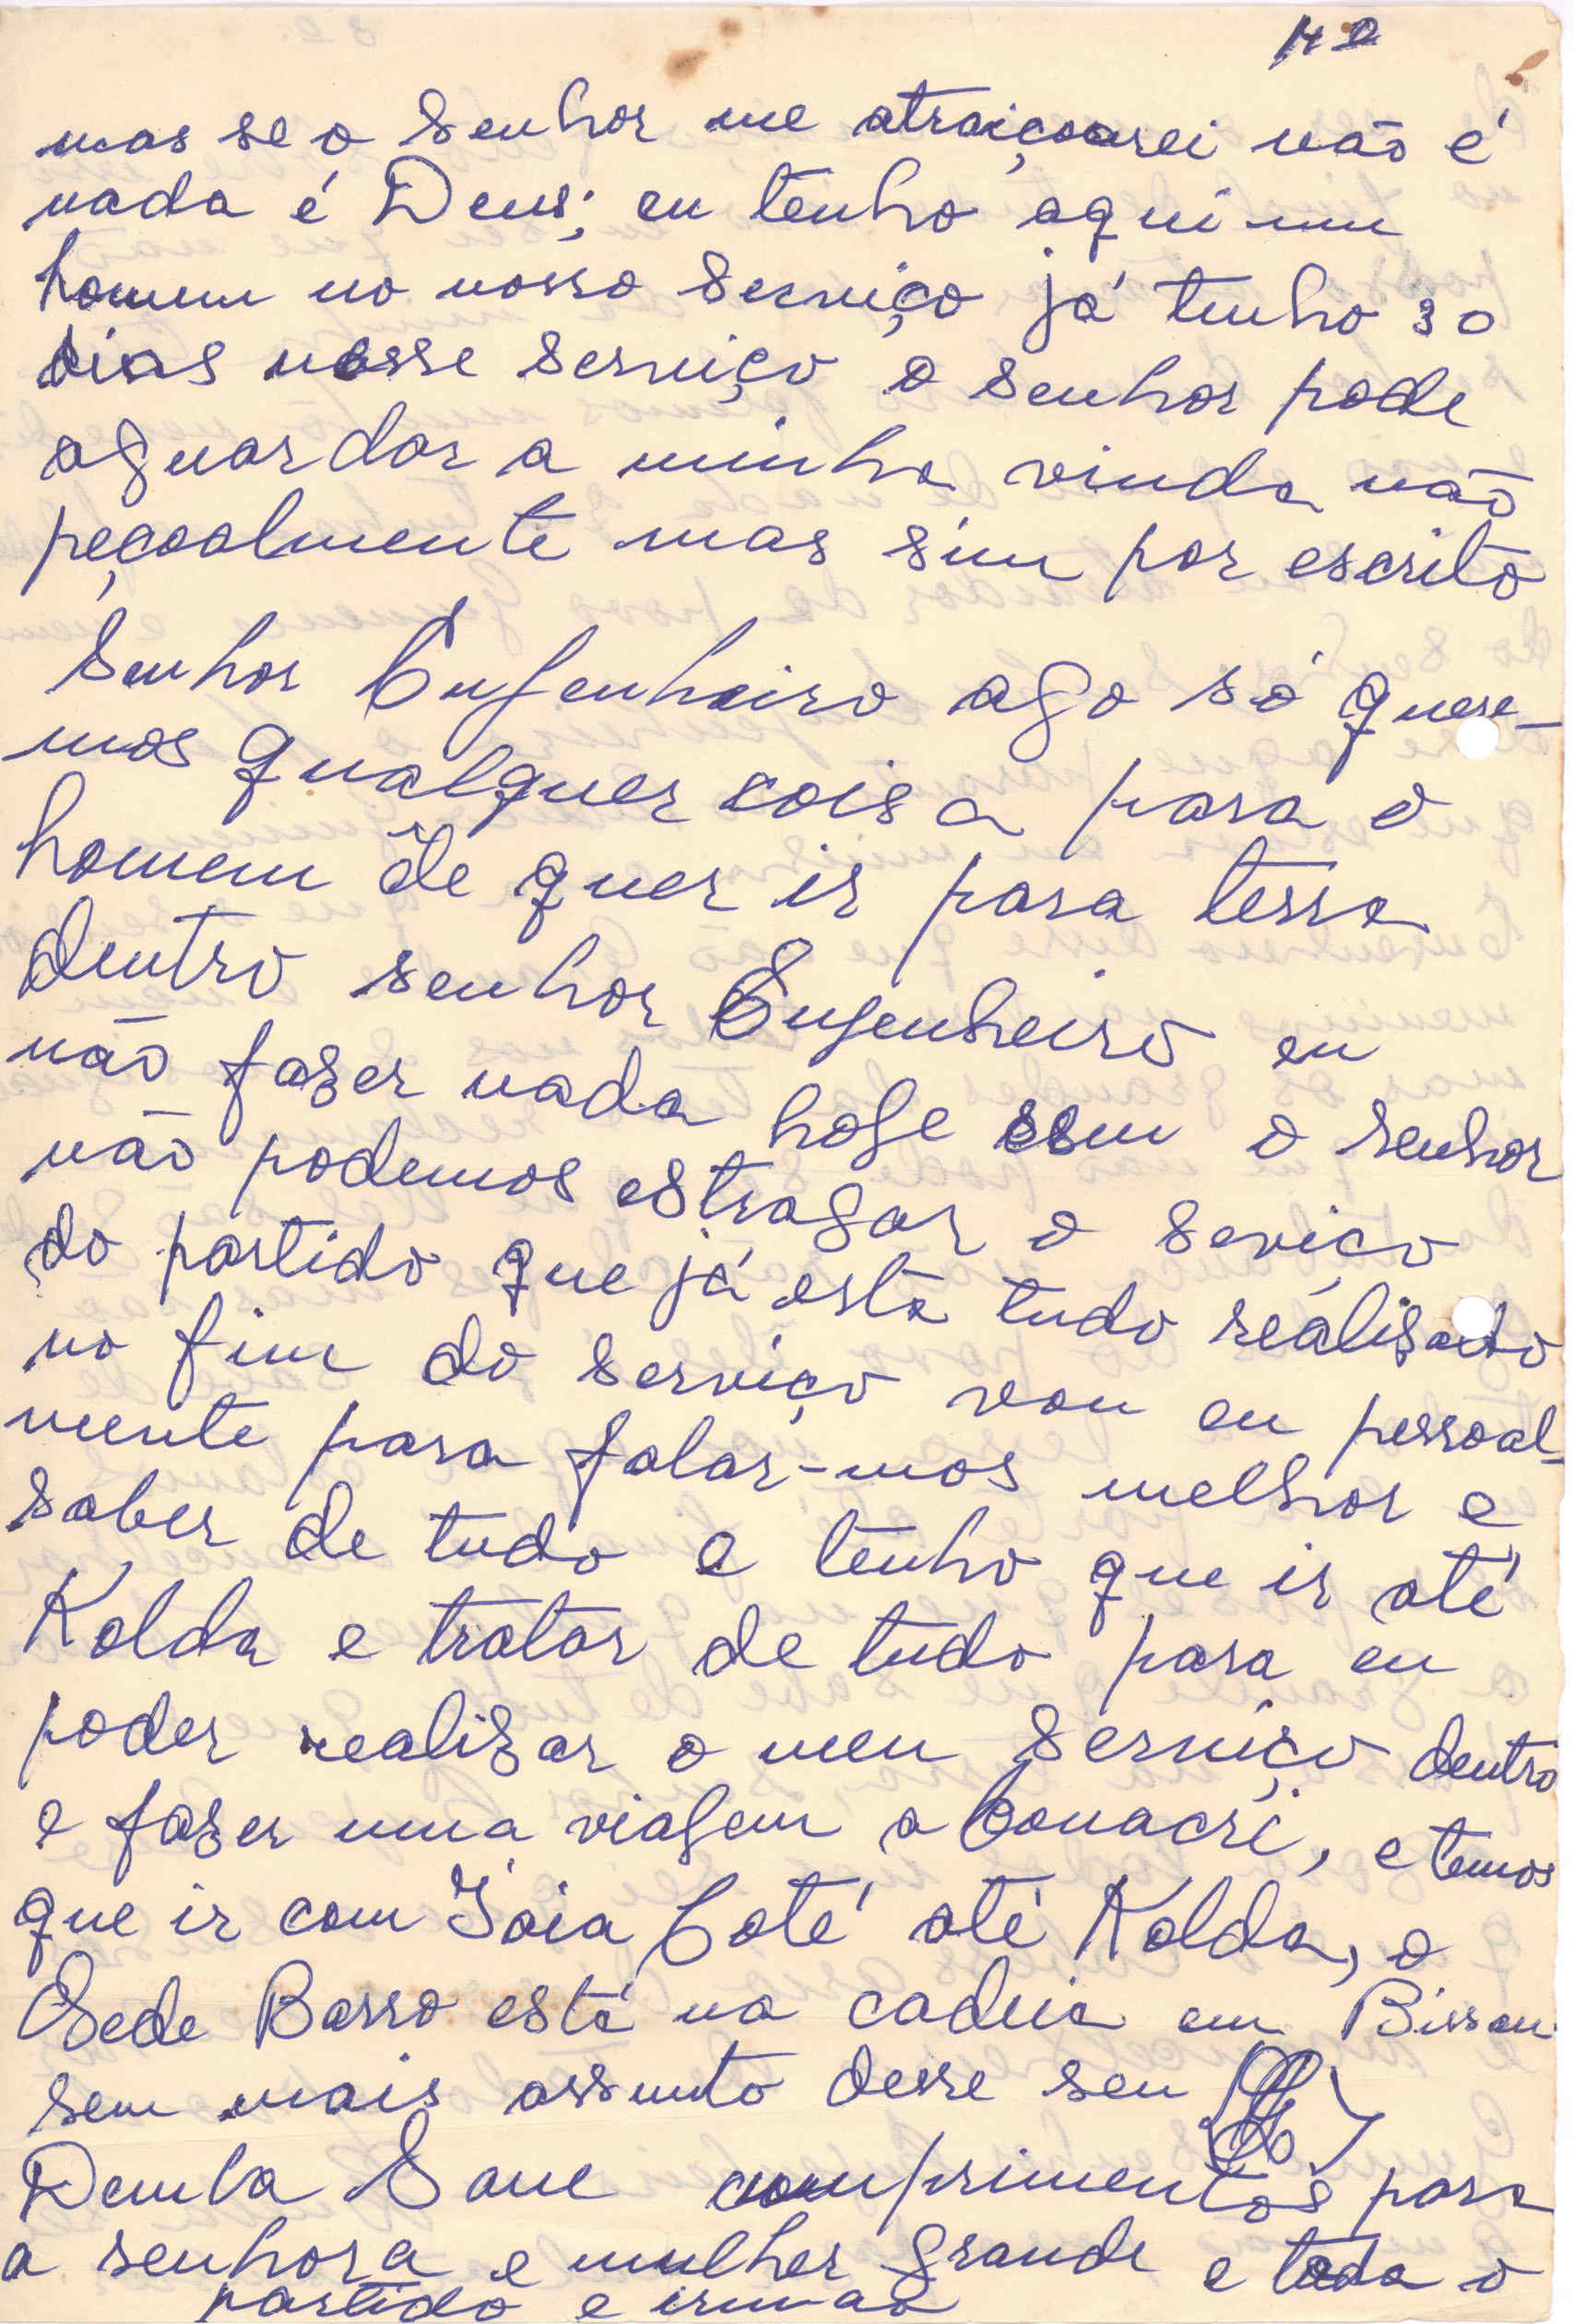 mas se o Senhor me atraiçoarei não é
nada é Deus; eu tenho aqui um
homem no nosso serviço já tenho 30
dias nesse serviço o senhor pode
aguardar a minha vinda não
peçoalmente mas sim por escrito
Senhor Engenheiro ago só quere-
mos qualquer coisa para o
homem êle quer ir para terra
dentro senhor Engenheiro eu
não fazer nada hoje sem o senhor
não podemos estragar o seviço
do partido que já esta tudo realizado
no fim do serviço vou eu pessoal-
mente para falar-mos melhor e
saber de tudo e tenho que ir até
Kolda e tratar de tudo para eu
poder realizar o meu serviço dentro
e fazer uma viagem a Conacri, e temos
que ir com Iaia Coté até Kolda, o
Sede Barro está na cadeia em Bissau
sem mais assunto desse seu
Demba Sane comprimentos para
a senhora e mulher grande e toda o
partido e irmao